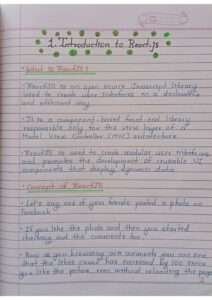 1. Introduction to ReactJS
* What is ReactJS?
- ReactJS is an open source Javascript library
used to create user interfaces in a declarative
and efficient way.
- It is a component-based front end library
responsible only for the view layer of a
Model View Controller (MVC) architecture.
- ReactJS is used to create modular user interfaces
and promotes the development of reusable UI
components that display dynamic data.
* Concept of ReactJS
- Let's say one of your friends posted a photo on
facebook.
- If you like the photo and then you started
checking out the comments too.
- Now as you browsing over comments you can see
that the likes count has increased by 100 since
you like the picture even without reloading the page